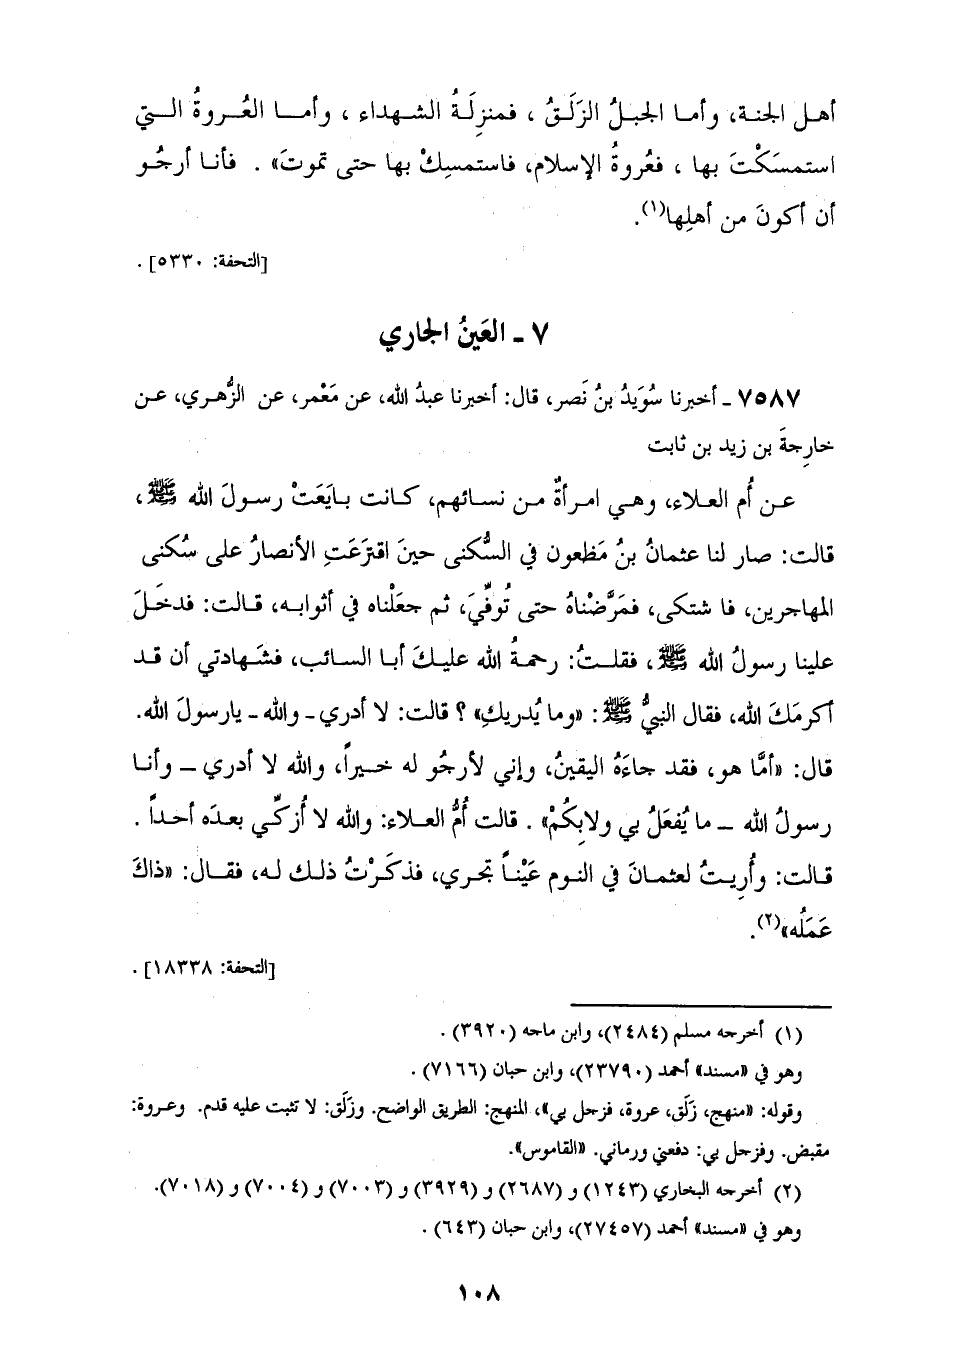 أهل الجنة، وأما الجبلُ الزَلَقُ ، فمنزِلَةُ الشهداء ، وأما العُروةُ التي
استمسَكْتَ بها ، فعُروةُ الإسلام، فاستمسِكْ بها حتى تموتَ» . فأنا أرجُو
أن أكونَ من أهلِها(١).
[التحفة: ٥٣٣٠] .
٧ ـ العَينُ الجاري
٧٥٨٧ ـ أخبرنا سُوَيدُ بنُ نَصر، قال: أخبرنا عبدُ الله، عن مَعْمر، عن الزُّهري، عن
خارِجةَ بن زيد بن ثابت
عن أُم العلاء، وهي امرأةٌ من نسائهم، كانت بايَعَتْ رسولَ الله ﷺ ،
قالت: صار لنا عثمانُ بنُ مَظعون في السُّكنى حينَ اقتَرَعَتِ الأنصارُ على سُكنى
المهاجرين، فا شتكى، فمَرَّضْناهُ حتى تُوفِّيَ، ثم جعَلْناه في أثوابه، قالت: فدخَلَ
علينا رسولُ الله ﷺ ، فقلتُ: رحمةُ الله عليكَ أبا السائب، فشَهادتي أن قد
أكرمَكَ الله، فقال النبيُّ ﷺ : «وما يُدريكِ» ؟ قالت: لا أدري ـ والله ـ يارسولَ الله.
قال: «أمَّا هو، فقد جاءَهُ اليقينُ، وإني لأرجُو له خيراً، والله لا أدري ـ وأنا
رسولُ الله ـ ما يُفعَلُ بي ولابِكُمْ» . قالت أُمُّ العلاء: والله لا أُزكّي بعدَه أحداً .
قالت: وأُرِيتُ لعثمانَ في النوم عَيْناً تجري، فذكَرْتُ ذلك له، فقال: «ذاكَ
عَمَلُه»(٢).
[التحفة: ١٨٣٣٨] .
(١) أخرجه مسلم (٢٤٨٤)، وابن ماجه (٣٩٢٠) .
وهو في «مسند» أحمد (٢٣٧٩٠)، وابن حبان (٧١٦٦) .
وقوله: «منهج، زَلَق، عروة، فزحل بي»، المنهج: الطريق الواضح. وزَلَق: لا تثبت عليه قدم. وعروة:
مقبض. وفزحل بي: دفعني ورماني. «القاموس».
(٢) أخرجه البخاري (١٢٤٣) و (٢٦٨٧) و (٣٩٢٩) و (٧٠٠٣) و (٧٠٠٤) و (٧٠١٨).
وهو في «مسند» أحمد (٢٧٤٥٧)، وابن حبان (٦٤٣) .
١٠٨